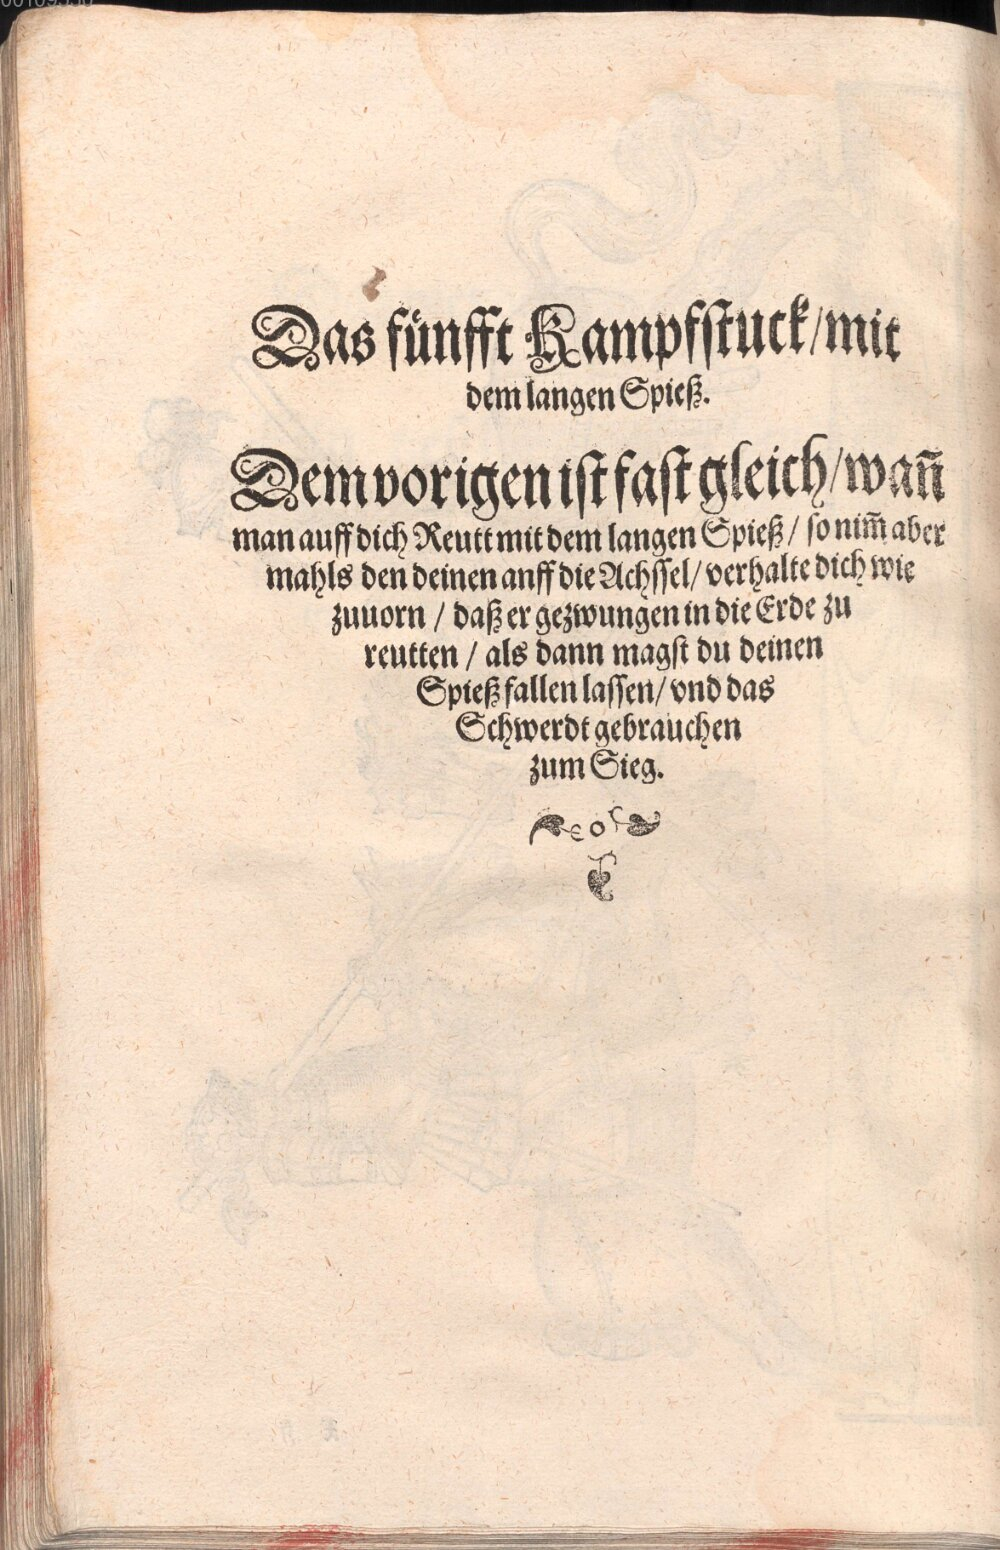 Das fünfft Kampfstuck/mit
dem langen Spieß.
Dem vorigen ist fast gleich/wañ
man auff dich Reutt mit dem langen Spieß/ so nim̃ aber
mahls den deinen anff die Achssel/ verhalte dich wie
zuuorn / daß er gezwungen in die Erde zu
reutten / als dann magst du deinen
Spieß fallen lassen/ vnd das
Schwerdt gebrauchen
zum Sieg.